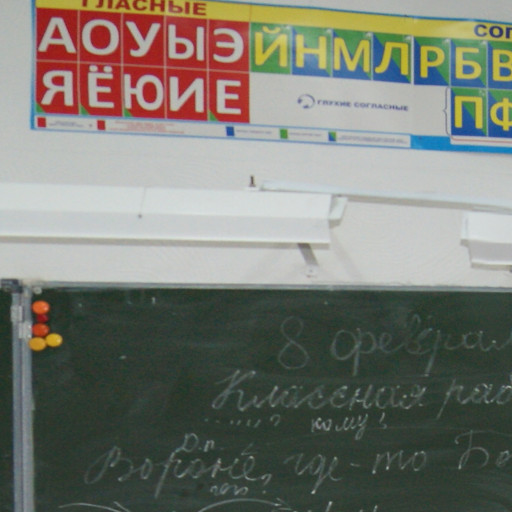 ГЛАСНЫЕ СОГ
А О У Ы Э Й Н М Л Р Б В
Я Ё Ю И Е П Ф
ГЛУХИЕ СОГЛАСНЫЕ
8 феврал
Классная раб
кому?
Д.п.
Вороне, где-то Бо